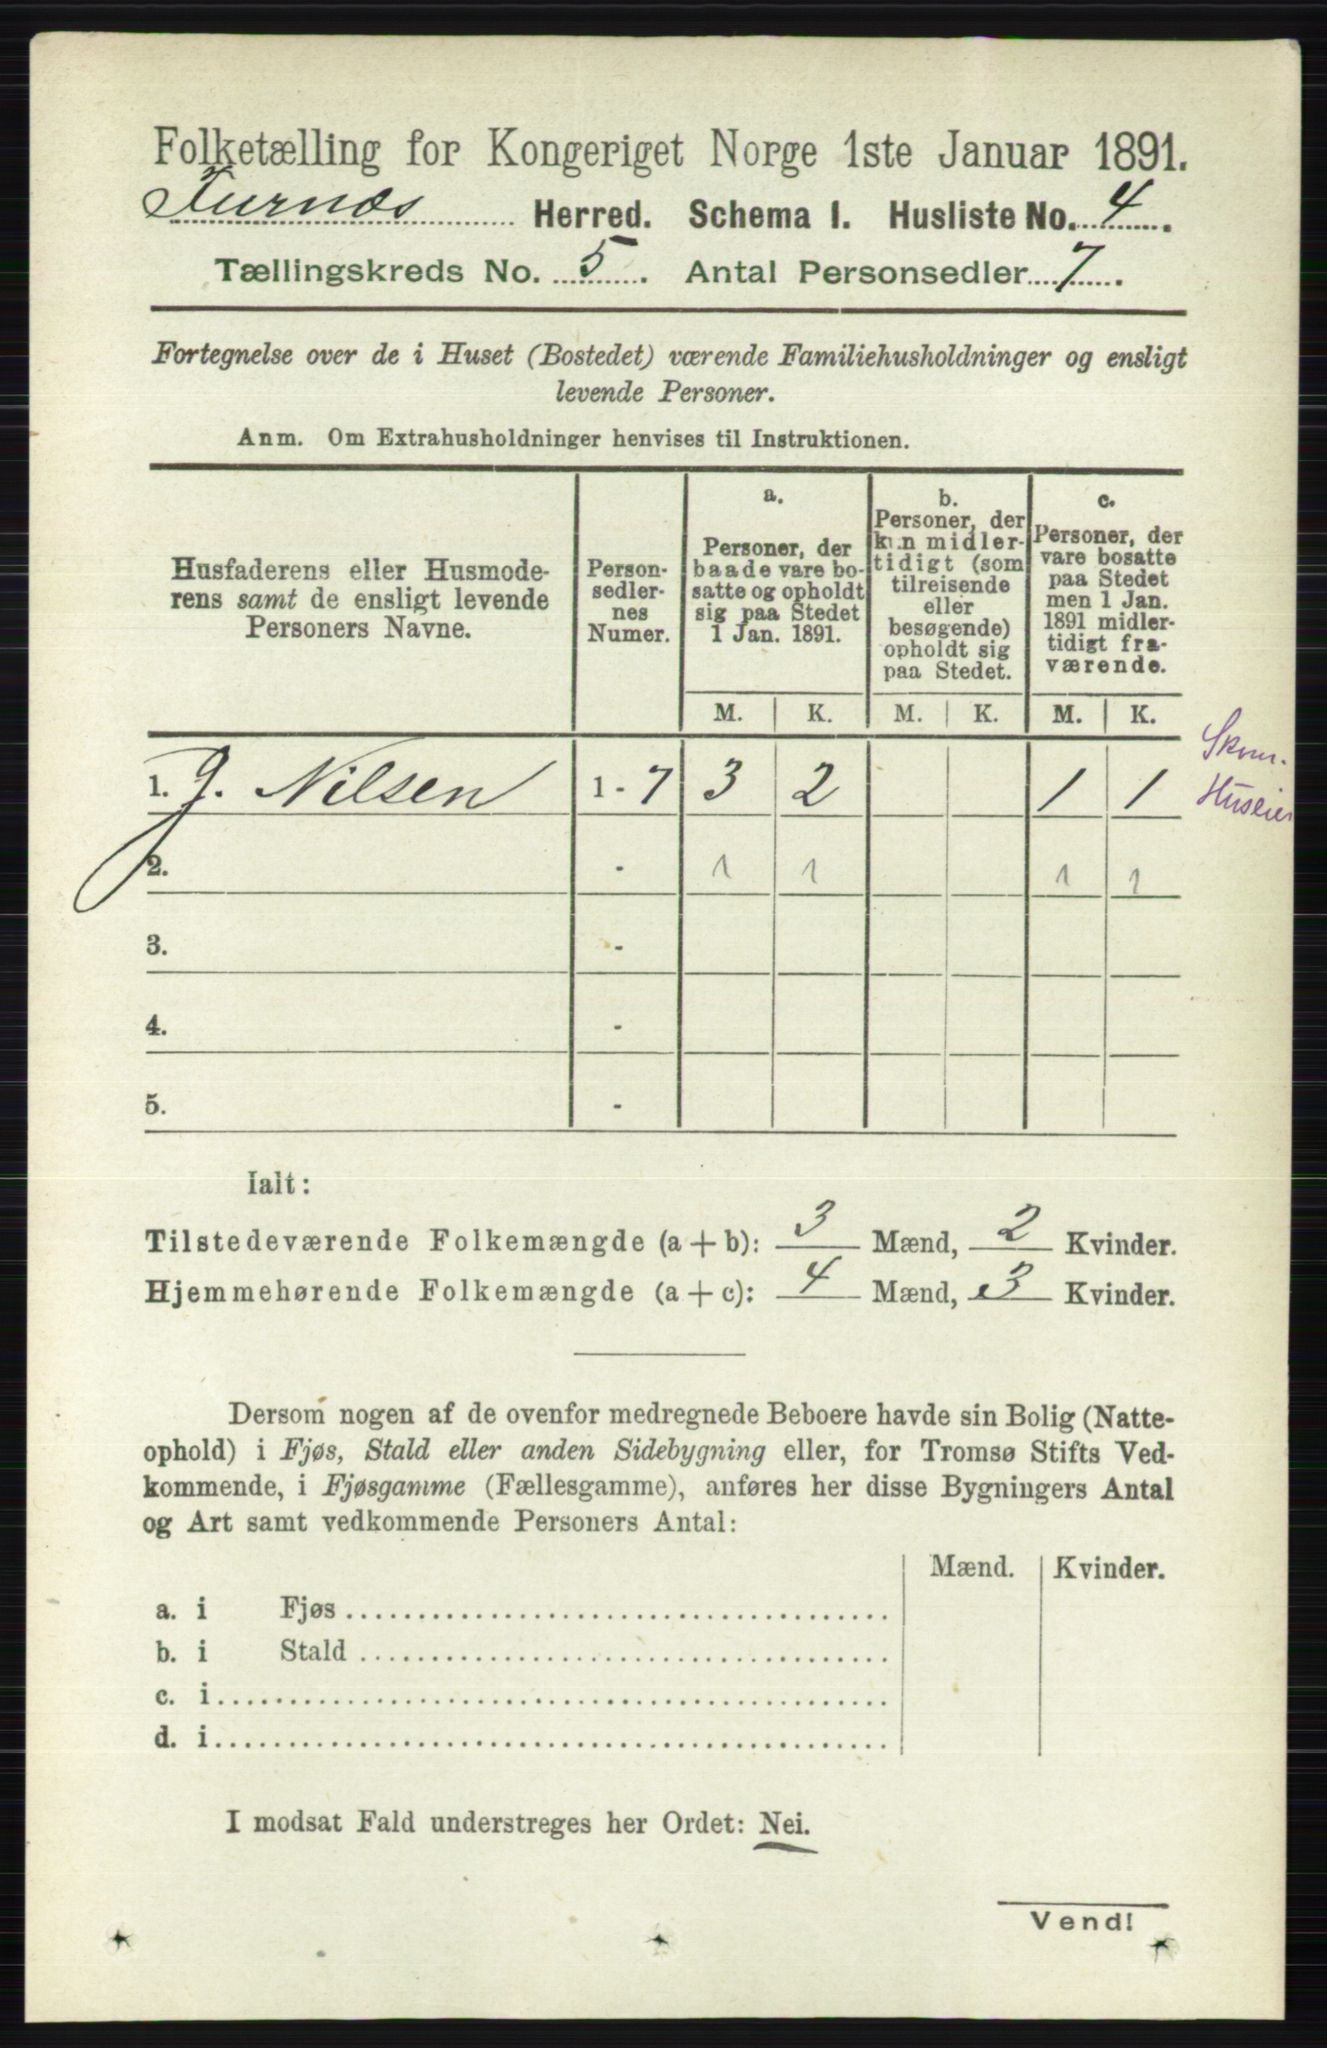 Folketælling for Kongeriget Norge 1ste Januar 1891.
Furnæs Herred. Schema I. Husliste No. 4.
Tællingskreds No. 5. Antal Personsedler 7.
Fortegnelse over de i Huset (Bostedet) værende Familiehusholdninger og ensligt
levende Personer.
Anm. Om Extrahusholdninger henvises til Instruktionen.
Husfaderens eller Husmode-
rens samt de ensligt levende
Personers Navne.
Person-
sedler-
nes
Numer.
a.
Personer, der
baade vare bo-
satte og opholdt
sig paa Stedet
1 Jan. 1891.
b.
Personer, der
kun midler-
tidigt (som
tilreisende
eller
besøgende)
opholdt sig
paa Stedet.
c.
Personer, der
vare bosatte
paa Stedet
men 1 Jan.
1891 midler-
tidigt fra-
værende.
M. K. M. K. M. K.
1. J. Nilsen 1 - 7 3 2 1 1
Huseier
2. - 1 1 1 1
3. -
4. -
5. -
Ialt:
Tilstedeværende Folkemængde (a + b): 3 Mænd, 2 Kvinder.
Hjemmehørende Folkemængde (a + c): 4 Mænd, 3 Kvinder.
Dersom nogen af de ovenfor medregnede Beboere havde sin Bolig (Natte-
ophold) i Fjøs, Stald eller anden Sidebygning eller, for Tromsø Stifts Ved-
kommende, i Fjøsgamme (Fællesgamme), anføres her disse Bygningers Antal
og Art samt vedkommende Personers Antal:
Mænd. Kvinder.
a. i Fjøs
b. i Stald
c. i
d. i
I modsat Fald understreges her Ordet: Nei.
Vend!